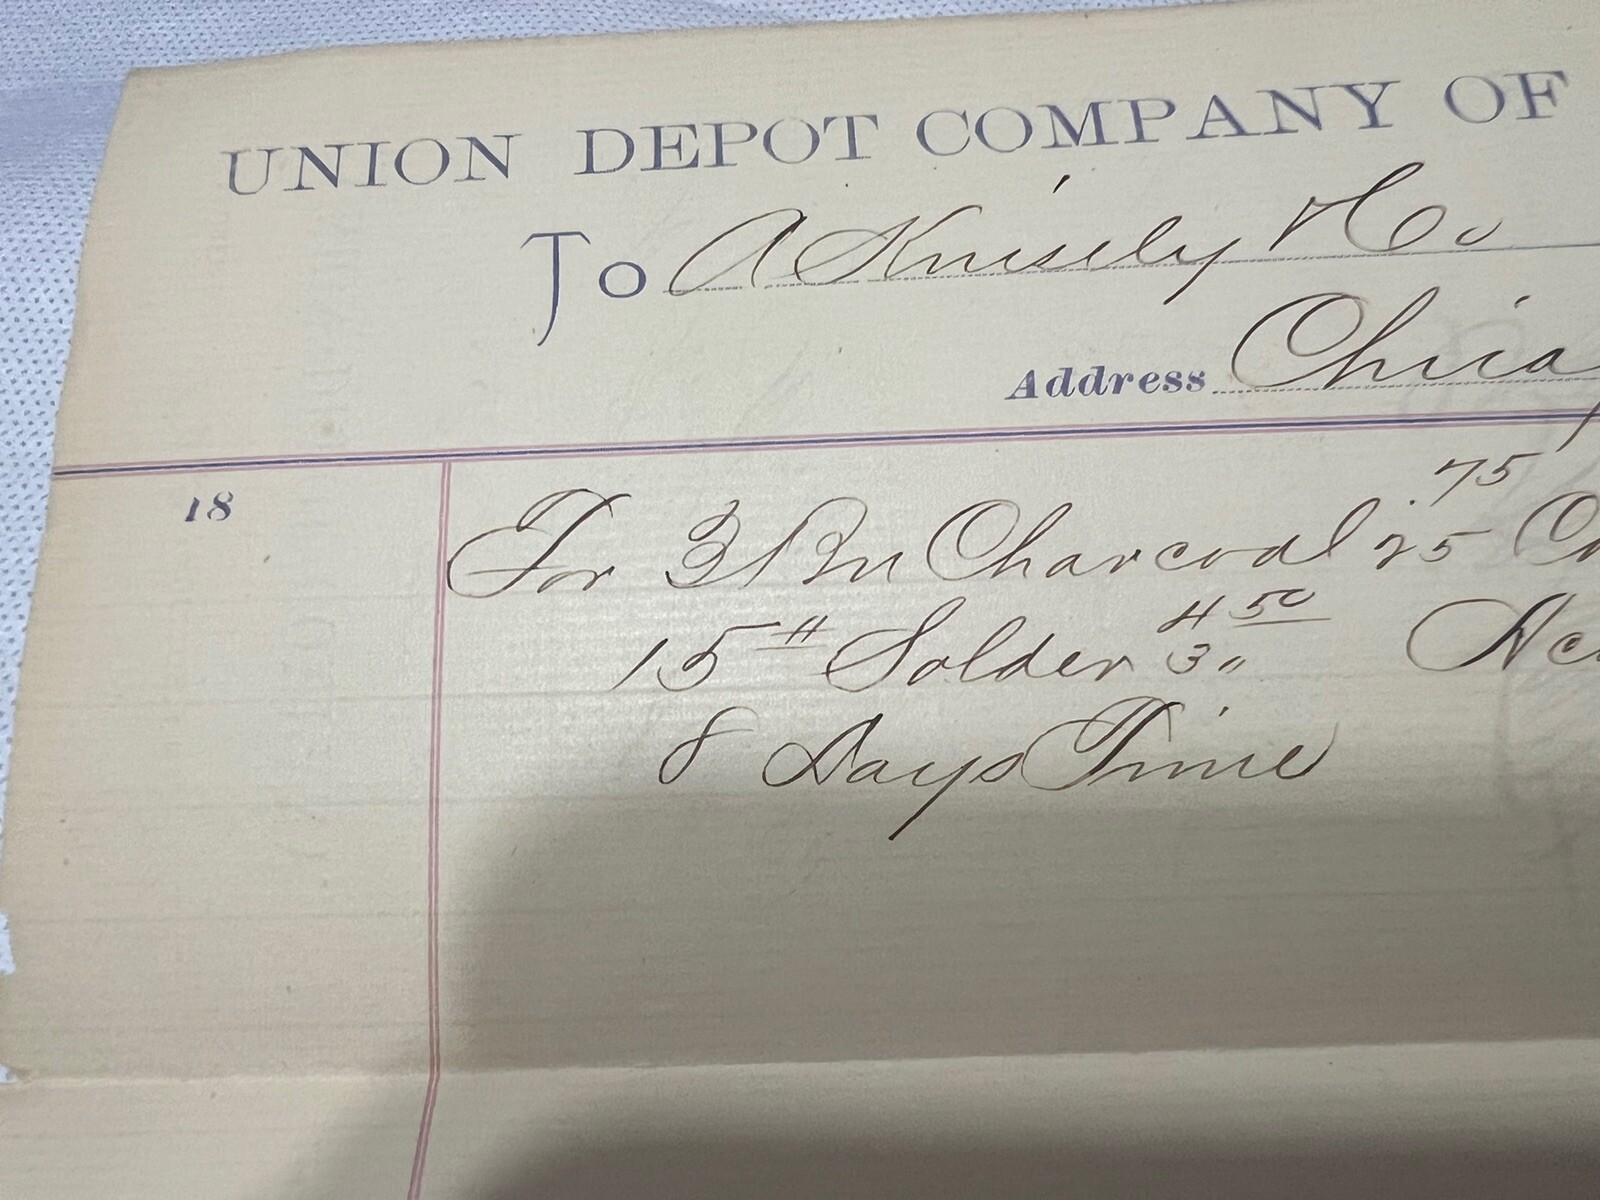 UNION DEPOT COMPANY OF
To A Knisely & Co
Address Chica
18
For 3 Bu Charcoal 25 .75
15# Solder 30 4 50
8 Days Time